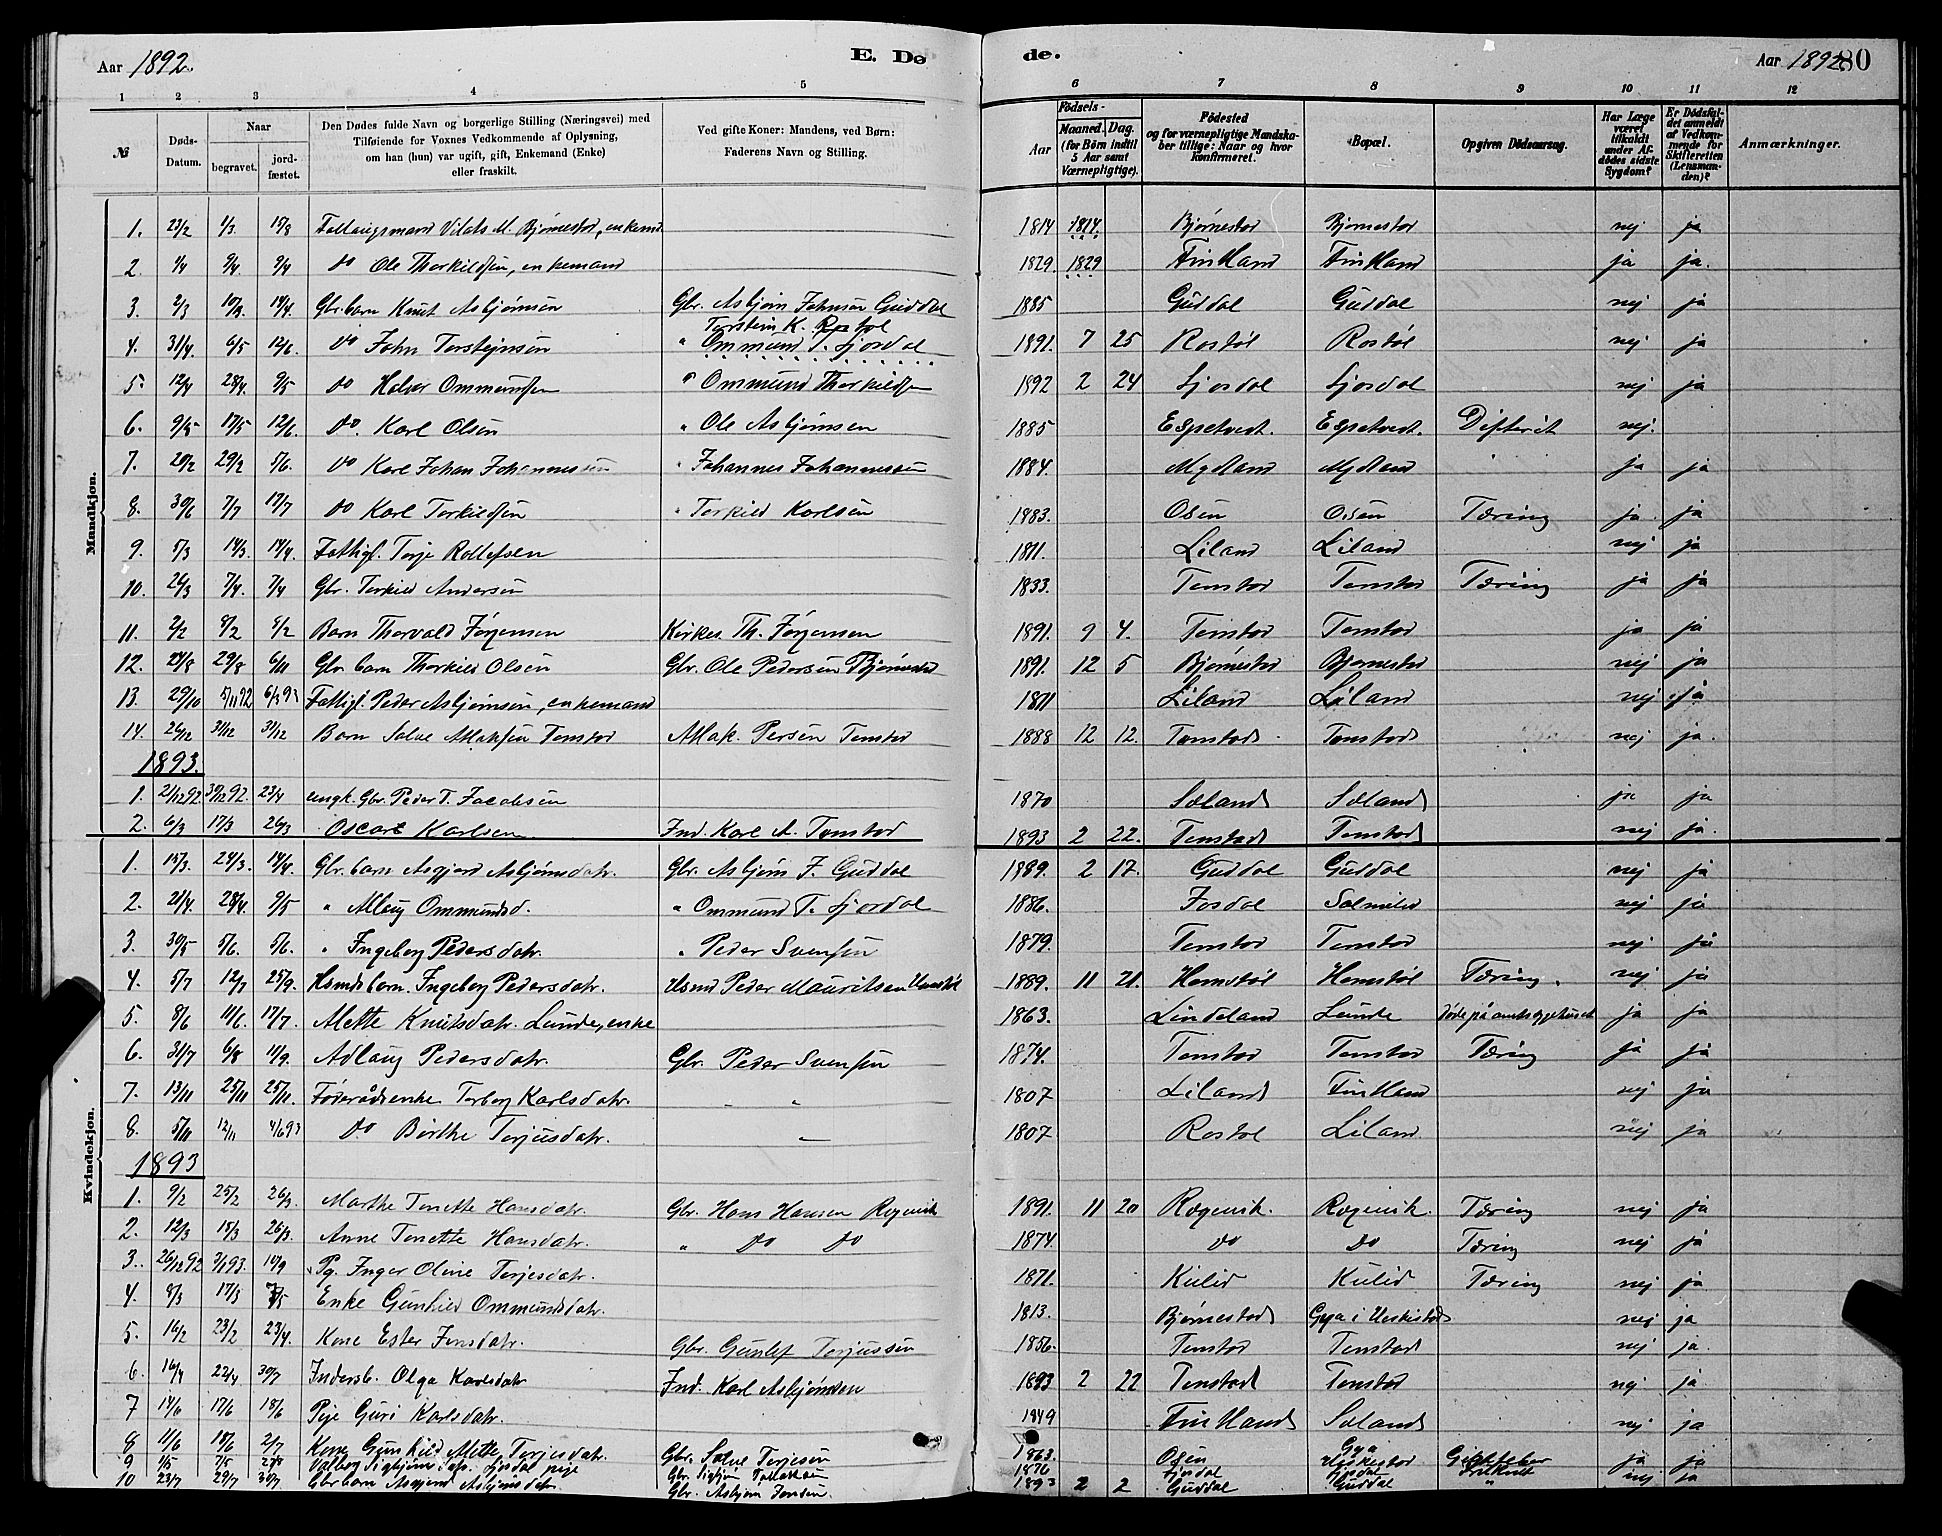 Aar 1892.
E. Dø
de.
Aar 1892
80
1 2 3 4 5 6 7 8 9 10 11 12
№
Døds-Datum.
Naar
begravet.
jord-fæstet.
Den Dødes fulde Navn og borgerlige Stilling (Næringsvei) med
Tilføiende for Voxnes Vedkommende af Oplysning,
om han (hun) var ugift, gift, Enkemand (Enke)
eller fraskilt.
Ved gifte Koner: Mandens, ved Børn:
Faderens Navn og Stilling.
Aar
Fødsels-
Maaned. Dag.
(for Børn indtil
5 Aar samt
Værnepligtige).
Fødested
og for værnepligtige Mandska-
ber tillige: Naar og hvor
konfirmeret.
Bopæl.
Opgiven Dødsaarsag.
Har Læge
været
tilkaldt
under Af-
dødes sidste
Sygdom?
Er Dødsfal-
det anmeldt
af Vedkom-
mende for
Skifteretten
(Lensman-
den)?
Anmærkninger.
Mandkjøn.
1. 23/2 1/3. 15/8 Bjørnestad, enkemd 1814 1814. Bjørnestad Bjørnestad nej ja
2. 1/4 9/4. 9/4 do Ole Thorkildsen, enkemand 1829. 1829 Finkland Finkland ja ja.
3. 2/3 10/3 14/4. Gbr. barn Knut Asbjørnsen Gbr. Asbjørn Johnsen Guddal 1885 Guddal Guddal nej ja
Torstein K. Rostøl
4. 31/4. 6/5 12/6. do John Torstejnsen " Ommund T. Sjordal 1891. 7 25 Rostøl Rostøl nej ja
5. 12/4 28/4. 9/5 do Halvor Ommundsen " Ommund Thorkildsen 1892 2 24 Sjordal Sjordal nej ja
6. 9/5 17/5 12/6. do. Karl Olsen " Ole Asbjørnsen 1885 Espetvedt. Espetvedt. Difterit nej.
7. 20/2 29/2 5/6. do Karl Johan Johannessen " Johannes Johannessen 1884. Mydland Mydland ja ja
8. 30/6 7/7 17/7 do Karl Torkildsen " Torkild Karlsen 1883. Osen Osen Tæring ja ja
9. 5/3 14/3. 14/4. Fattigl. Terje Rollefsen 1811. Liland Liland nej ja
10. 26/3 7/4. 7/4 Gbr. Torkild Andersen 1833. Tonstad Tonstad Tæring ja ja
11. 2/2 8/2 8/2 Barn Thorvald Jørgensen Kirkes. Th. Jørgensen 1891. 9 4. Tonstad Tonstad ja ja
12. 24/8 29/8 6/11 Gbr. barn Thorkild Olsen Gbr. Ole Pedersen Bjørnestad 1891. 12 5 Bjørnestad Bjørnestad nej ja
13. 29/10 5/11 92 6/3 93 Fattigl. Peder Asbjørnsen, enkemand 1811 Liland Liland nej ja
14. 26/12 31/12 31/12 Barn Salve Atlaksen Tonstad Atlak. Persen Tonstad 1888 12 12. Tonstad Tonstad nej ja.
1893.
1. 21/12 92. 30/12 92. 23/4 ungk. Gbr. Peder T. Jacobsen 1870 Søland Søland ja ja
2. 6/3 17/3 26/3 Oscar Karlsen Ind. Karl A. Tonstad 1893 2 22. Tonstad Tonstad nej ja.
Kvindekjøn.
1. 15/3. 24/3. 14/4. Gbr. barn Asgjerd Asbjørnsdatr. Gbr. Asbjørn J. Guddal 1889. 2 17. Guddal Guddal nej ja
2. 21/4. 28/4. 9/5 " Allaug Ommundsd. " Ommund T. Sjordal 1886. Josdal nej ja
3. 30/5 5/6. 5/6. " Ingeborg Pedersdatr. " Peder Svensen 1879. Tonstad Tonstad nej ja
4. 5/7 12/7 25/9. Hsmdsbarn. Ingeborg Pedersdatr. Hsmd Peder Mauritsen Homstøl 1889. 11 21. Homstøl Homstøl Tæring. nej ja
5. 8/6 11/6. 17/7. Mette Knutsdatr. Lunde, enke 1863. Lindeland Lunde døde på amtssygehuset ja ja
6. 31/7 6/8 11/9. Adlaug Pedersdatr. Gbr. Peder Svensen 1874. Tonstad Tonstad Tæring ja ja
7. 13/11 25/11 25/11. Føderådsenke Torborg Karlsdatr. 1807 Liland Finkland nej ja
8. 5/11 12/11 4/6 93 do Birthe Terjusdatr. 1807. Rostøl Liland nej ja
1893
1. 9/2 25/2 26/3. Marthe Tonette Hansdatr. Gbr. Hans Hansen Røgevik 1891. 11 20 Røgevik. Røgevik. Tæring nej ja
2. 12/3 15/3 26/3. Anne Tonette Hansdatr. " do do 1874. do do Tæring nej ja
3. 26/12 92 7/1 93. 14/9 Pg. Inger Oline Terjesdatr. 1871. Kulid Kulid Tæring nej ja
4. 8/3 17/3 7/5 Enke Gunhild Ommundsdatr. 1813. Bjørnestad Gya i nej ja
5. 16/2 23/2 23/4. Kone Ester Jensdatr. Gbr. Gunlef Terjussen 1856. Tonstad Tonstad nej ja.
6. 16/4 22/4 30/7 Indersb. Olga Karlsdatr Ind. Karl Asbjørnsen 1893 2 22 Tonstad Tonstad nej ja
7 14/6 17/6 18/6 Pige Guri Karlsdatr. 1849 Finkland Søland nej ja
8 11/6 18/6 2/7 Kone Gunhild Mette Terjesdatr. Gbr. Salve Terjesen 1863. Osen Gya Gigtfeber ja ja
9 1/5 7/5 27/8 Valborg Sigbjørnsdatr. Sjordal pige Gbr. Sigbjørn 1876 Sjordal Sjordal
10 23/7 29/7 30/7 Gbr barn Asgjerd Asbjørnsdatr. Gbr. Asbjørn Jonsen. 1893 2 2 Guddal Guddal " nej ja